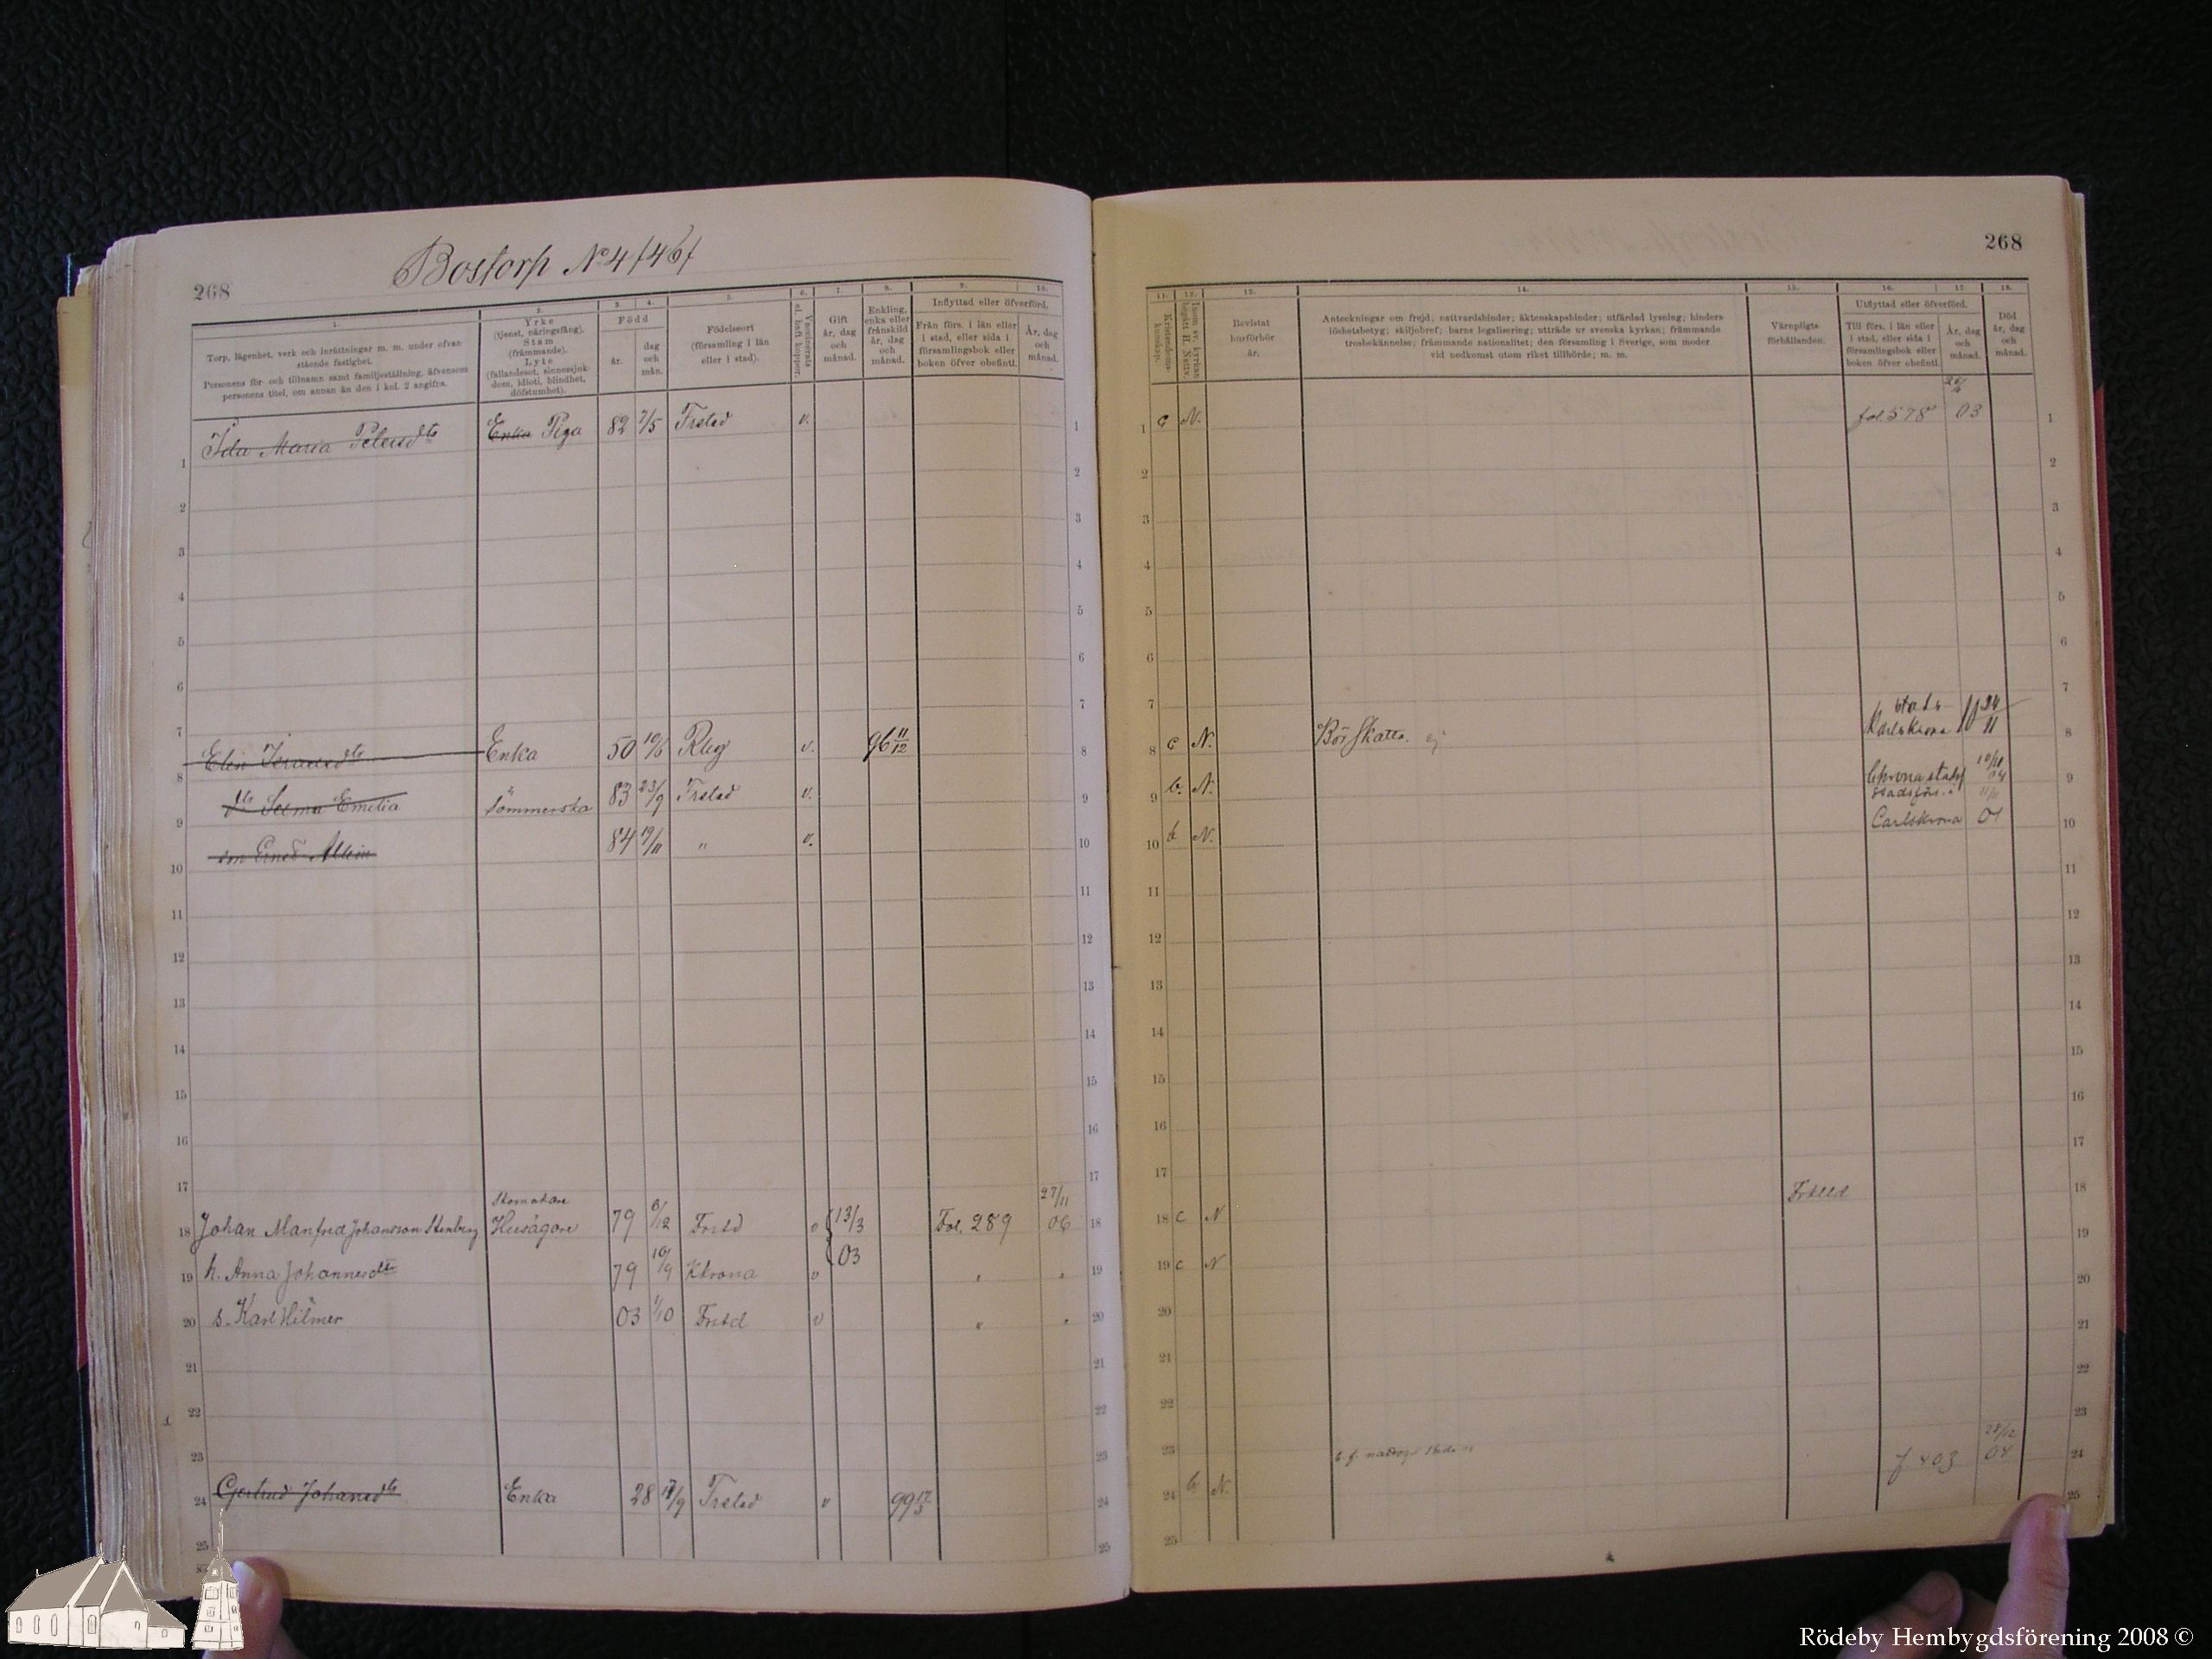 268
Bostorp No 4 /46/
1.
Torp, lägenhet, verk och inrättningar m. m. under ofvan-
stående fastighet.
Personens för- och tillnamn samt familjeställning, äfvensom
personens titel, om annan än den i kol. 2 angifna.
2.
Yrke
(tjenst, näringsfång).
Stam
(främmande).
Lyte
(fallandesot, sinnessjuk-
dom, idioti, blindhet,
döfstumhet).
3. 4.
Född
år.
dag
och
mån.
5.
Födelseort
(församling i län
eller i stad).
6.
Vaccinerats
el. haft koppor.
7.
Gift
år, dag
och
månad.
8.
Enkling,
enka eller
frånskild
år, dag
och
månad.
9. 10.
Inflyttad eller öfverförd.
Från förs. i län eller
i stad, eller sida i
församlingsbok eller
boken öfver obefintl.
År, dag
och
månad.
1 Ida Maria Petersdtr Enka Piga 82 7/5 Frstad v. 1
2
3
4
5
6
7
8 Elin Jönsdtr Enka 50 10/6 Rbg v. 96 11/12 8
9 dtr Selma Emelia Sömmerska 83 23/9 Frstad v. 9
10 son Ernst Albin 84 19/11 " v. 10
11
12
13
14
15
16
17
Skomakare 27/11
18 Johan Manfred Johansson Stenberg Husägare 79 6/12 Frstd v 13/3 Fol. 289 06 18
03
19 h. Anna Johannesdtr 79 10/9 Kkrona v " " 19
20 s. Karl Hilmer 03 1/10 Frstd v " " 20
21
22
23
24 Gertrud Johansdtr Enka 28 17/9 Frstad v 99 17/3 24
25
268
11.
Kristendoms-
kunskap.
12.
Inom sv. kyrkan
begått H. Nattv.
13.
Bevistat
husförhör
år.
14.
Anteckningar om frejd; nattvardshinder; äktenskapshinder; utfärdad lysning; hinders
löshetsbetyg; skiljobref; barns legalisering; utträde ur svenska kyrkan; främmande
trosbekännelse; främmande nationalitet; den församling i Sverige, som moder
vid nedkomst utom riket tillhörde; m. m.
15.
Värnpligts
förhållanden.
16. 17.
Utflyttad eller öfverförd.
Till förs. i län eller
i stad, eller sida i
församlingsbok eller
boken öfver obefintl.
År, dag
och
månad.
18.
Död
år, dag
och
månad.
1 c N. fol 578 03 1
2
3
4
5
6
7
8 c N. Bör Skatta. Karlskrona 24/11 8
9 b. N. Ckrona stadsförs. 10/11 04 9
10 b N. Carlskrona 01 10
11
12
13
14
15
16
17
18 c N Frälld 18
19 c N 19
20
21
22
23
28/12
24 b N. f 403 04 24
25
Rödeby Hembygdsförening 2008 ©